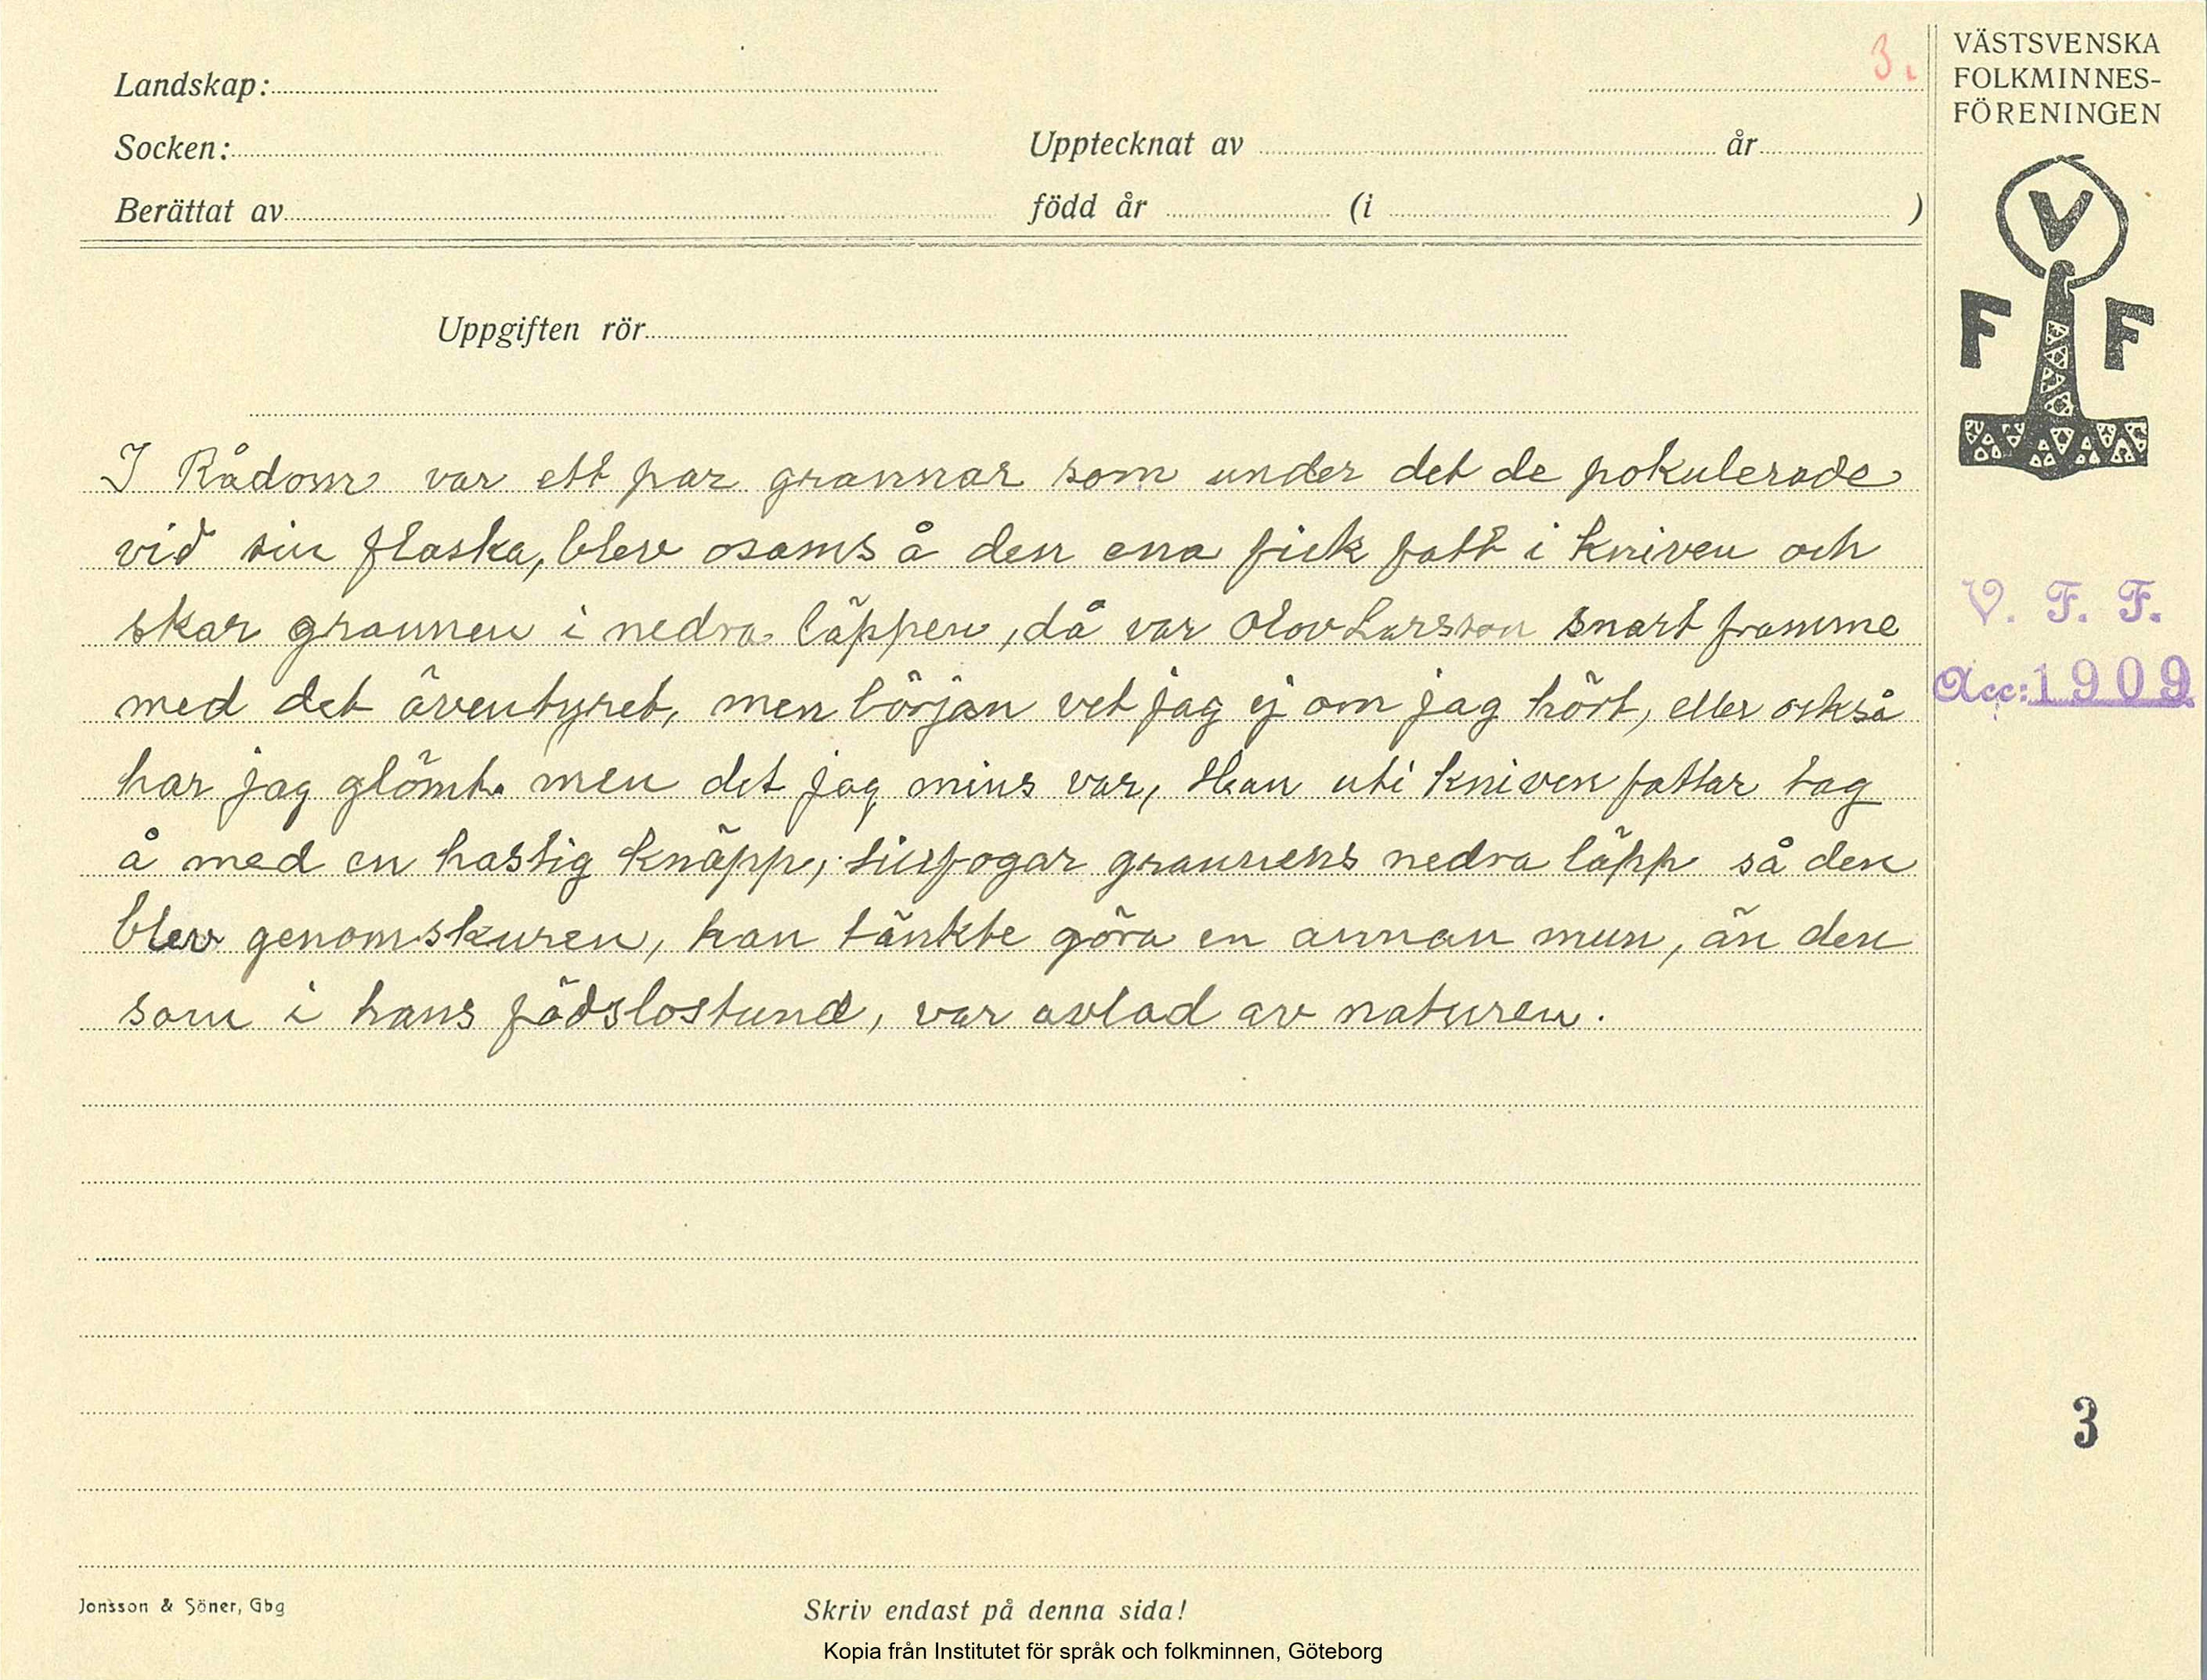 3.
VÄSTSVENSKA
FOLKMINNES-
FÖRENINGEN
Landskap:
Socken: Upptecknat av år
Berättat av född år (i )
V
F F
Uppgiften rör
I Rådom var ett par grannar som under det de pokulerade
vid sin flaska, blev osams å den ena fick fatt i kniven och
skar grannen i nedra läppen, då var Olov Larsson snart framme
med det äventyret, men början vet jag ej om jag hört, eller också
har jag glömt. men det jag mins var, Han uti kniven fattar tag
å med en hastig knäpp, grannens nedra läpp så den
blev genomskuren, han tänkte göra en annan mun, än den
som i hans födslostund, var avlad av naturen.
V. F. F.
Acc: 1909
3
Jonsson & Söner, Gbg
Skriv endast på denna sida!
Kopia från Institutet för språk och folkminnen, Göteborg